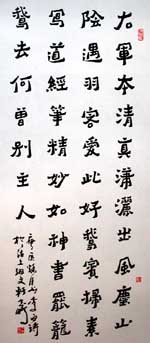 右軍本清真瀟灑出風塵山
陰遇羽客愛此好鵞賓掃素
寫道經筆精妙如神書罷籠
鵞去何曾別主人
李白詩